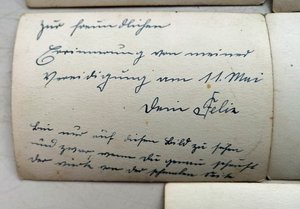 Zur freundlichen
Erinnerung von meiner
Vereidigung am 11. Mai
Dein Felix
bin nur auf disen Bild zu sehen
und zwar wenn Du genau schaust
der vierte von der schmalen Seite